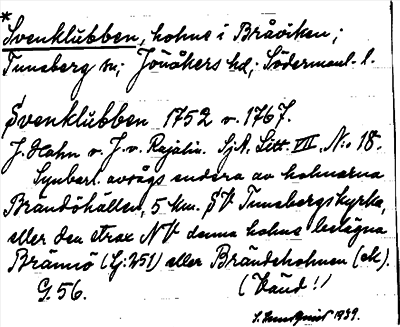 *
Svenklubben, holme i Bråviken;
Tunaberg sn; Jönåkers hd; Södermanl. l.
Svenklubben 1752 o. 1767.
J. Hahn o. J. v. Rajalin. SjA, Litt. VII, N:o 18.
Synbarl. avsågs endera av holmarna
Brändöhällen, 5 km. SV Tunabergs kyrka,
eller den strax NV denna holme belägna
Brännö (Lj:251) eller Brändeholmen (ek).
G. 56. (Vänd!)
1939.